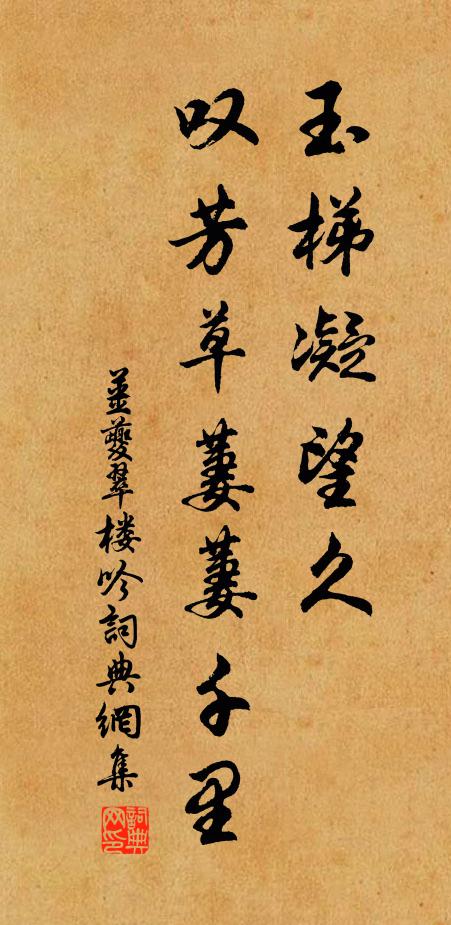 玉梯凝望久
叹芳草萋萋千里
姜夔翠楼吟詞典網集
詞典网印